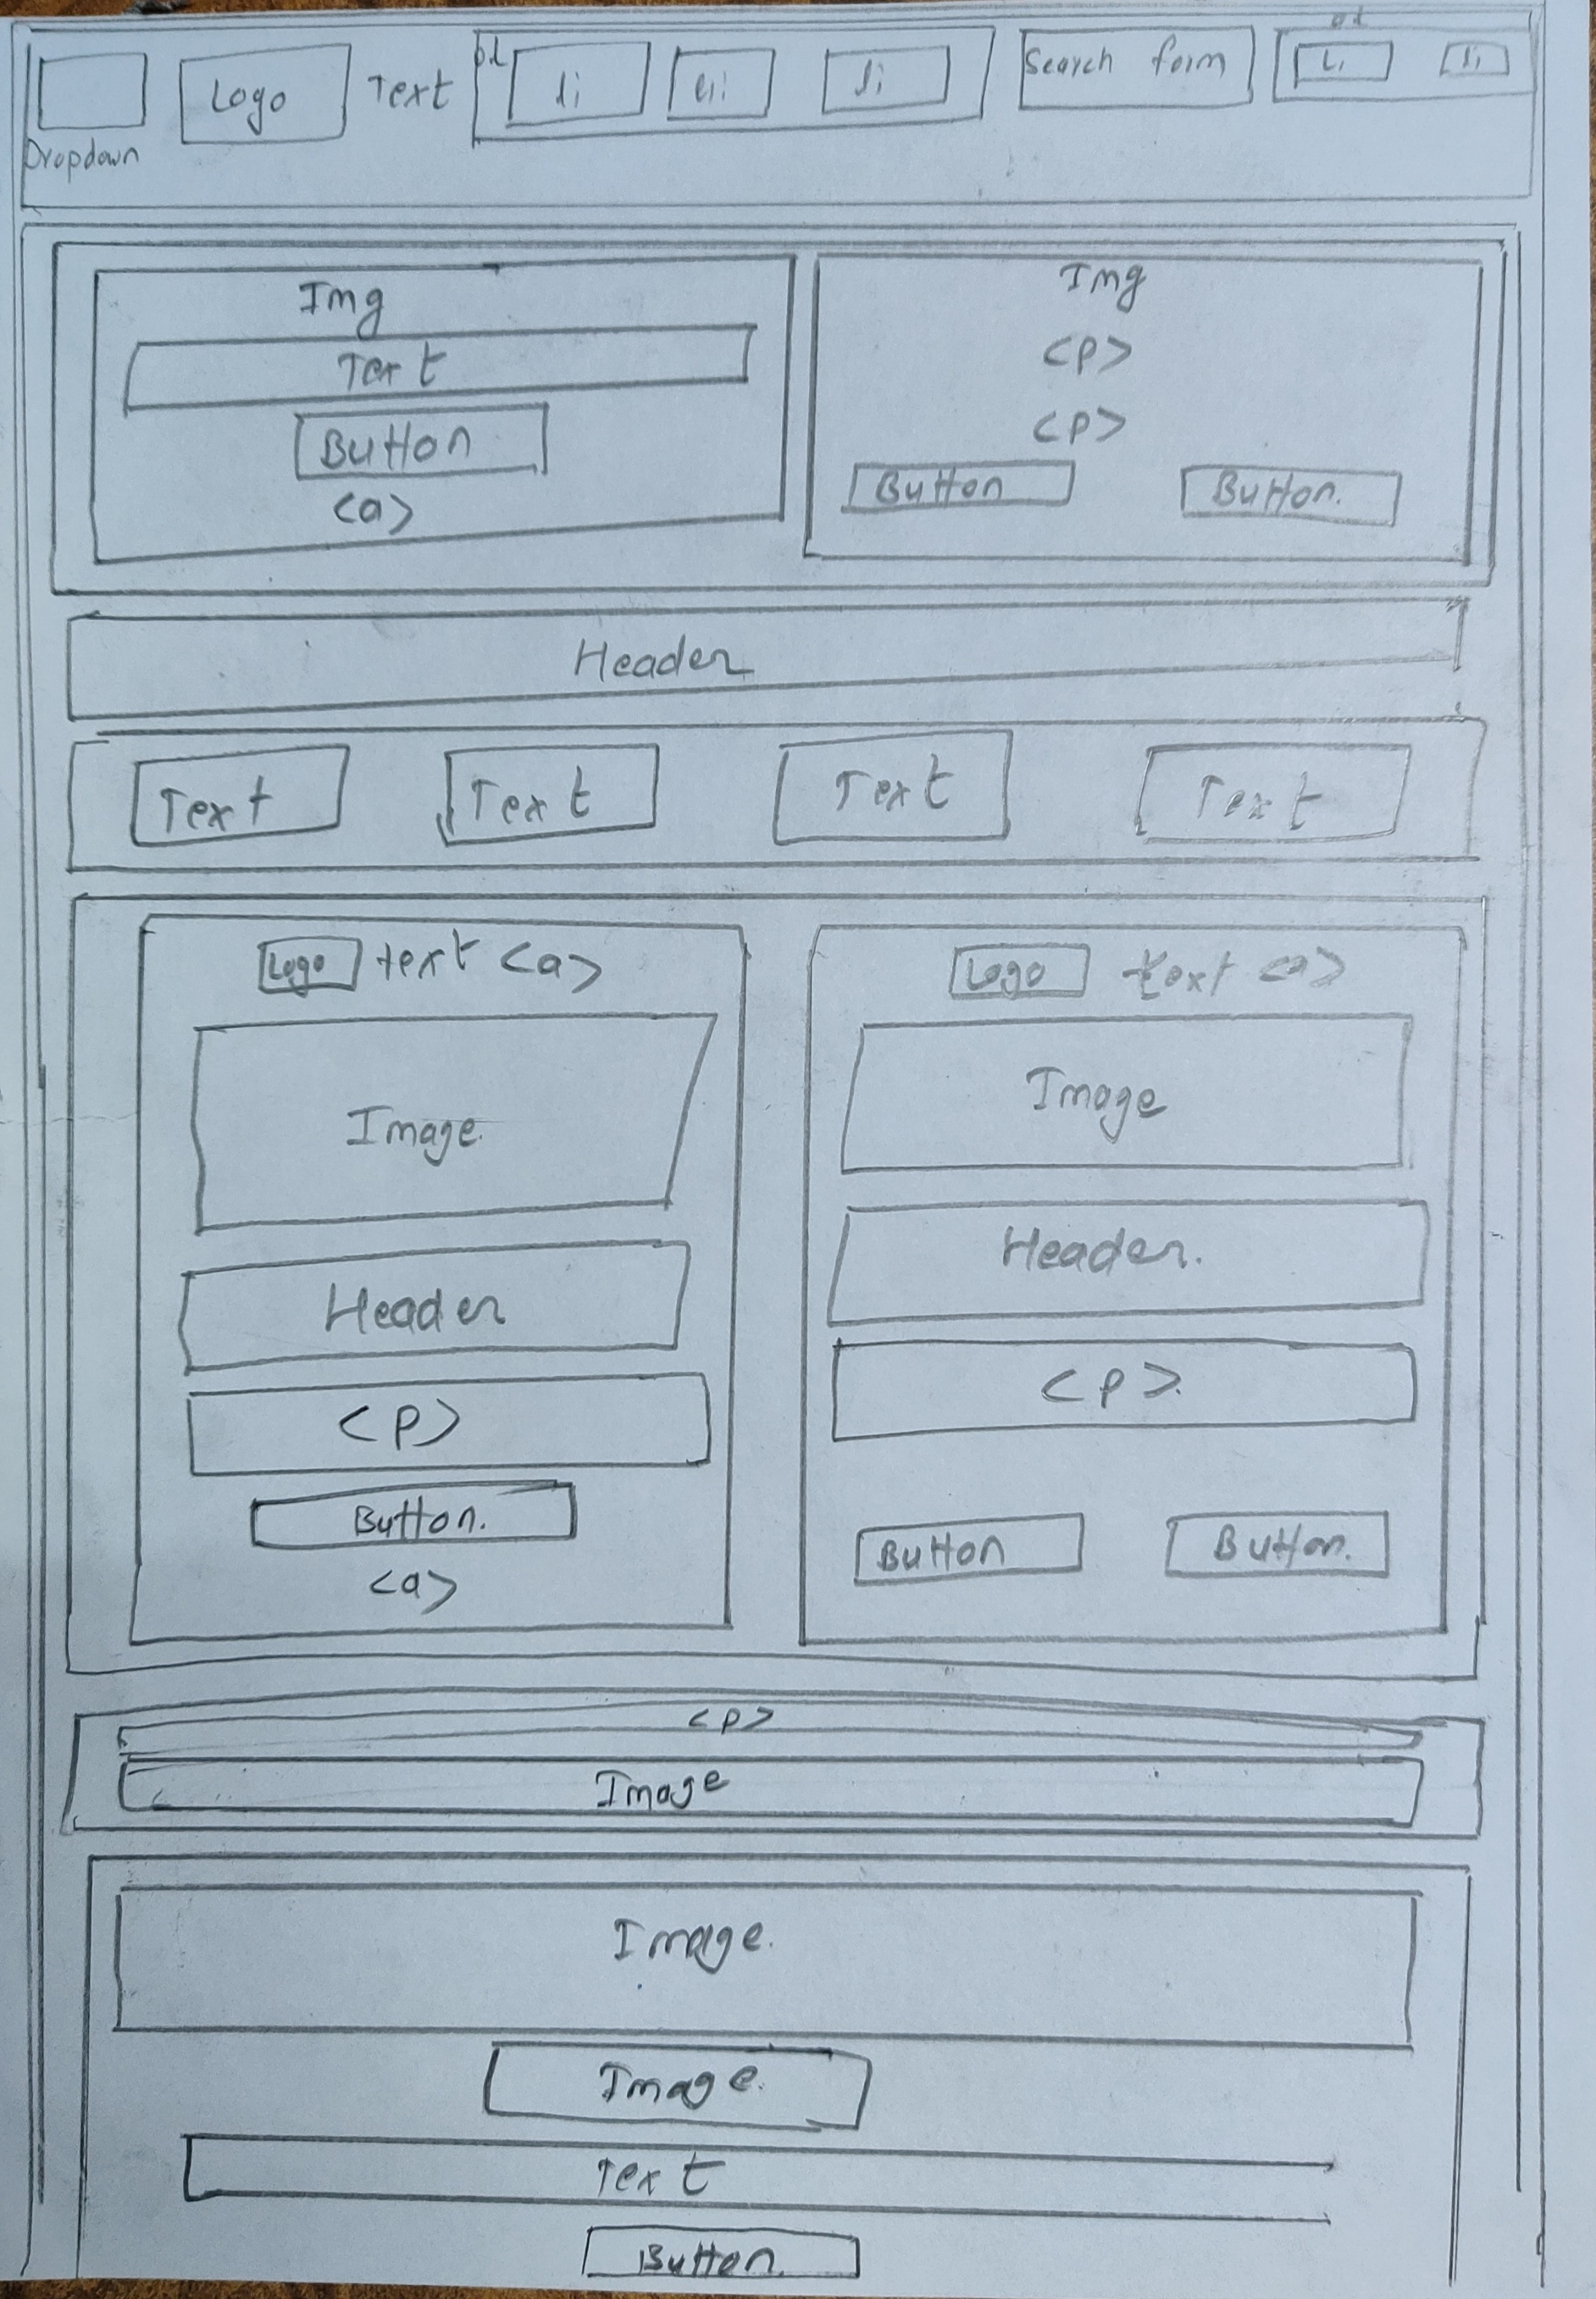 Dropdown
Logo
Text
li
li
li
Search form
Li
li
Img
Text
Button
<a>
Img
<p>
<p>
Button
Button.
Header
Text
Text
Text
Text
Logo text <a>
Image.
Header
<p>
Button.
<a>
Logo text <a>
Image
Header.
<p>.
Button
Button.
<p>
Image
Image.
Image.
Text
Button.